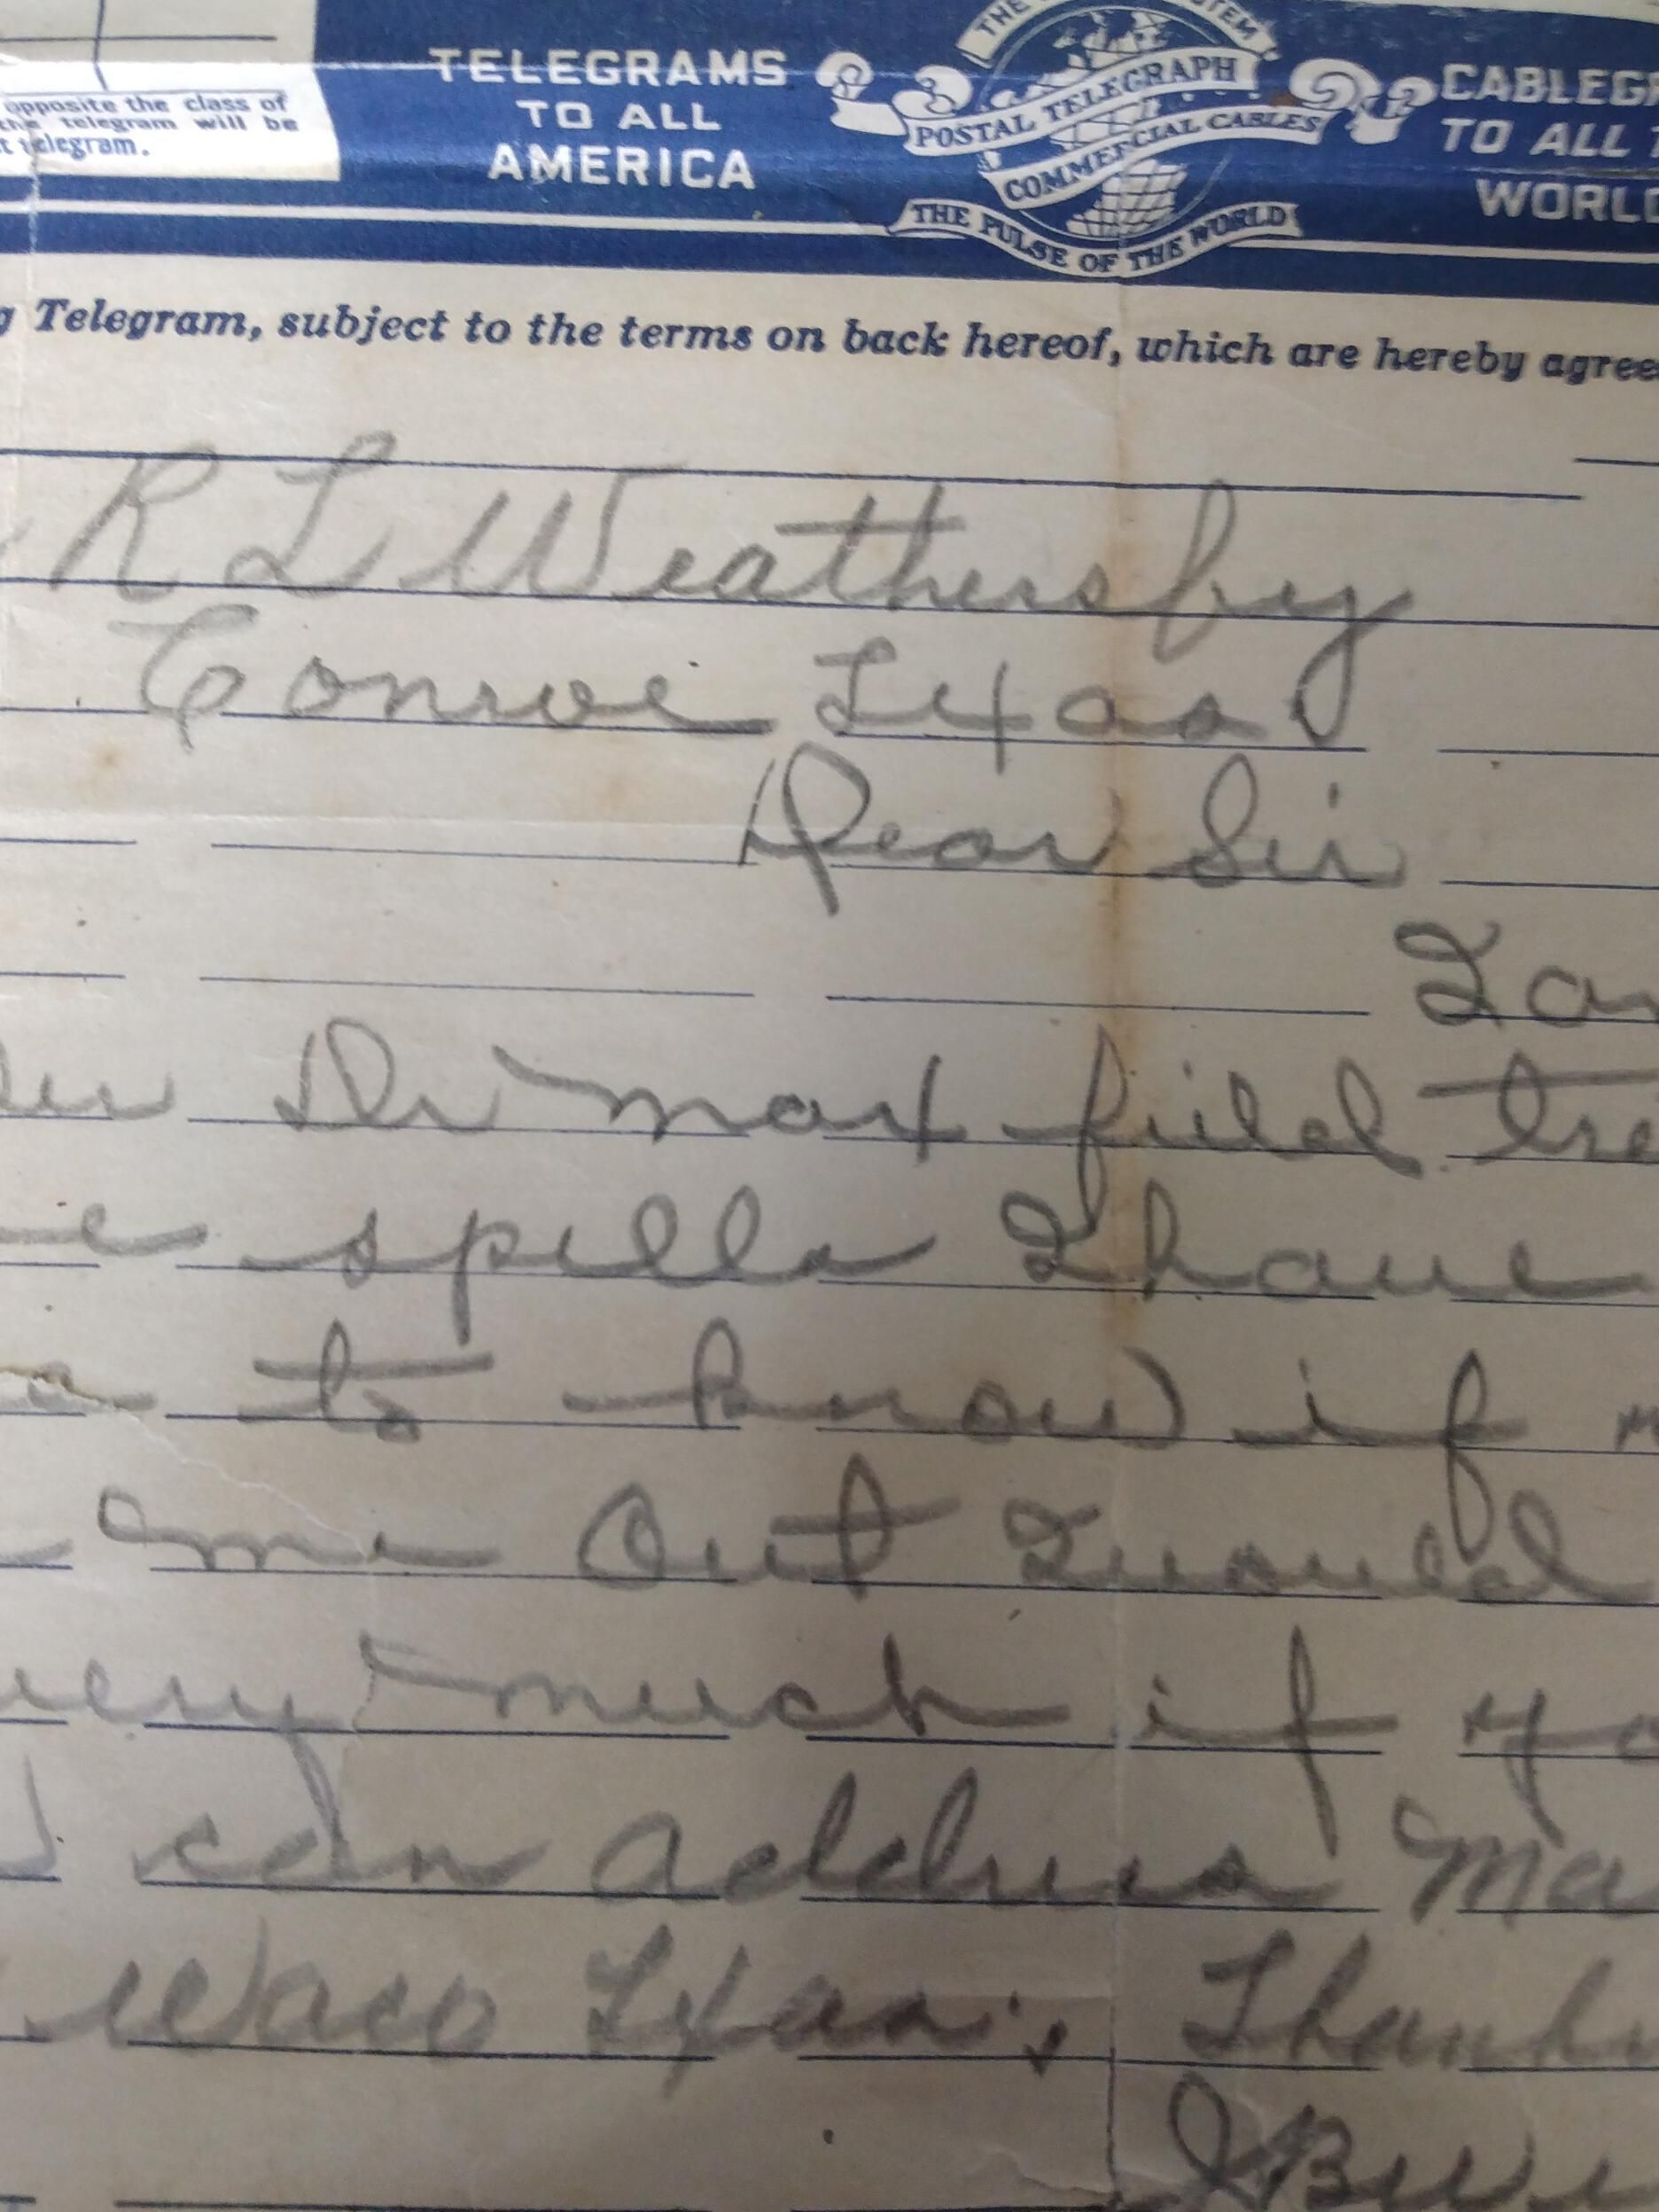 opposite the class of
the telegram will be
t telegram.
TELEGRAMS
TO ALL
AMERICA
THE SYSTEM
POSTAL TELEGRAPH
COMMERCIAL CABLES
THE PULSE OF THE WORLD
CABLEGR
TO ALL T
WORLD
g Telegram, subject to the terms on back hereof, which are hereby agree
R L Weathersby
Conroe Texas
Dear Sir
I am
Dr Maxfield tre
spells I have
to know if
me out I would
very much if yo
can address Ma
Waco Texas; Thank